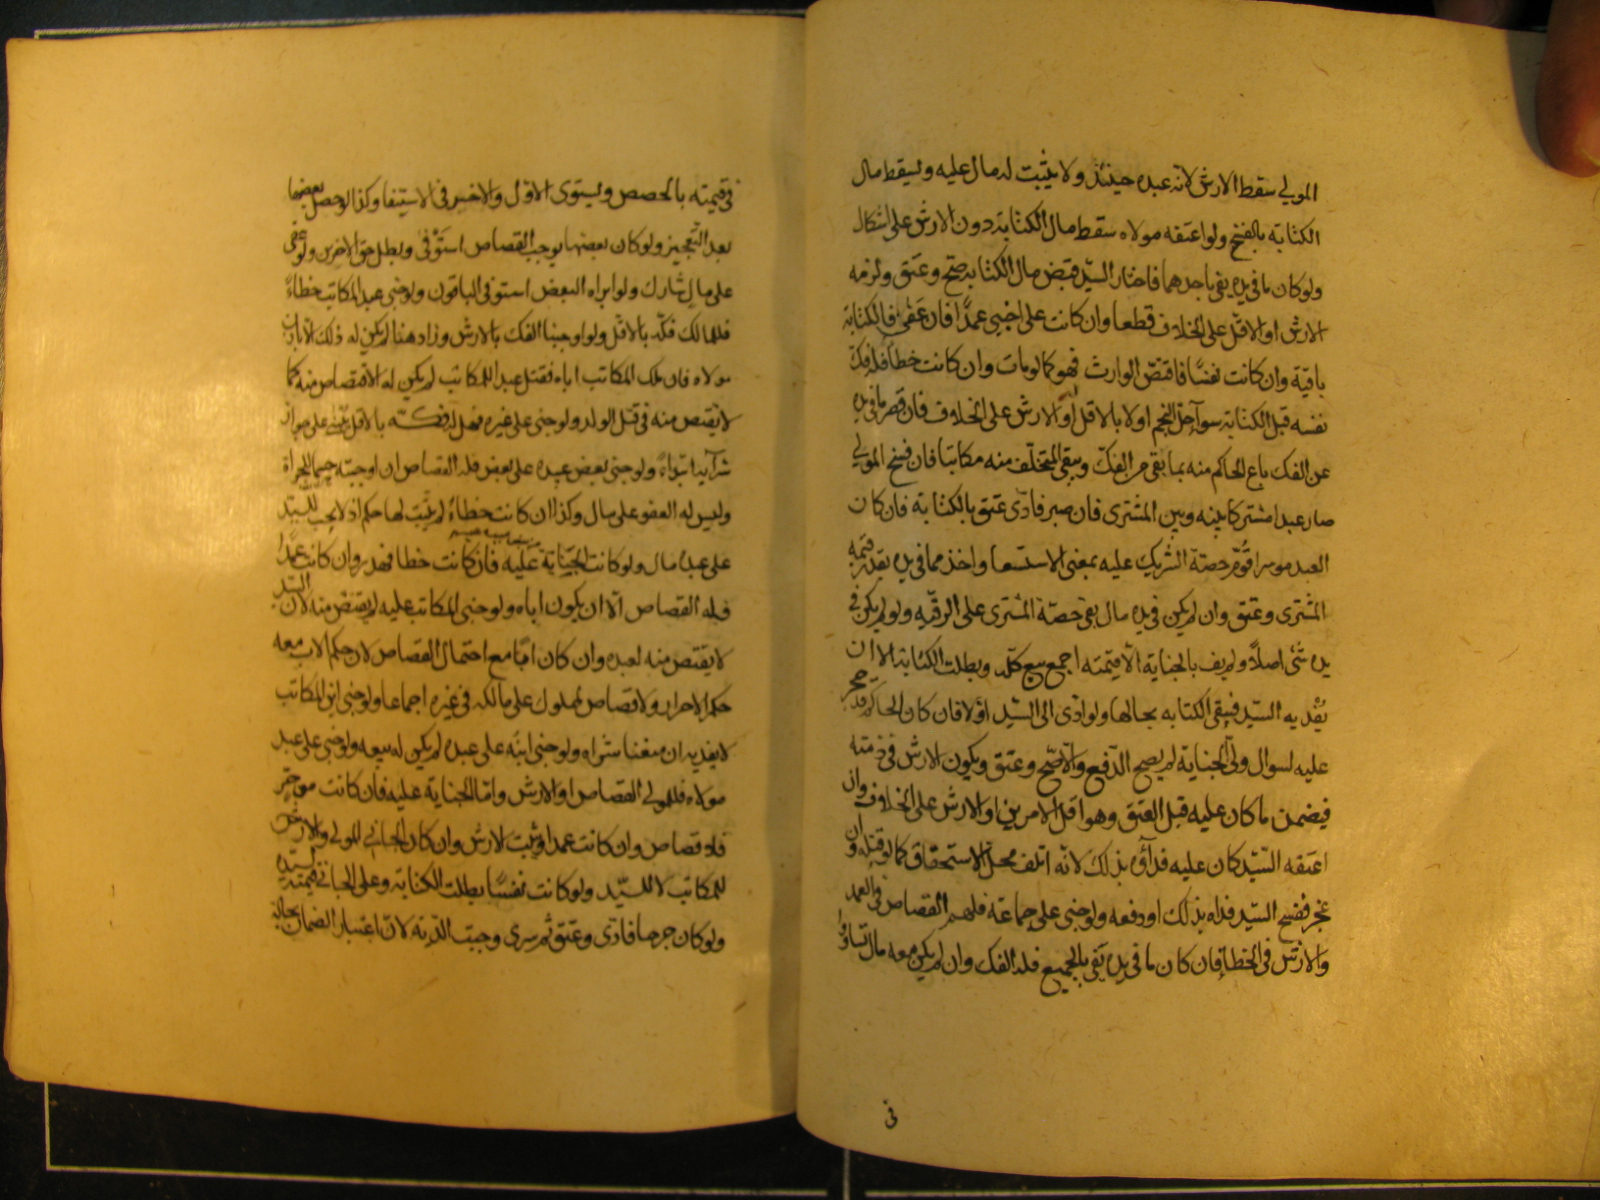 المولى سقط الارش لانه عبده حينئذ ولا يثبت له مال عليه ويسقط مال
الكتابة بالفسخ ولو اعتقه مولاه سقط مال الكتابة دون الارش على اشكال
ولو كان ما في يده يفي باحدهما فاختار السيد قبض مال الكتابة صح وعتق ولزمه
الارش او الاقل على الخلاف قطعا وان كانت على اجنبي عمدًا فان عفى فالكتابة
باقية وان كانت نفسًا فاقتص الوارث فهو كما لو مات وان كانت خطأ فله فك
نفسه قبل الكتابة سوآ حل النجم او لا بالاقل او الارش على الخلاف فان قصر ما في يده
عن الفك باع الحاكم منه بما بقي من الفك ويبقى المتخلف منه مكاتبا فان فسخ المولى
صار عبدا مشتركا بينه وبين المشترى فان صبر فادى عتق بالكتابة فان كان
العبد موسرا قوم حصة الشريك عليه بمعنى الاستسعا واخذ مما في يده بقدر قيمة
المشترى وعتق وان لم يكن في يده مال بقي حصة المشترى على الرقية ولو لم يكن في
يده شئ اصلاً ولم يف بالجناية الا قيمته اجمع بيع كله وبطلت الكتابة الا ان
يفديه السيد فيبقى الكتابه بحالها ولو ادى الى السيد اولا فان كان الحاكم قد حجر
عليه لسوال ولي الجناية لم يصح الدفع والا صح وعتق ويكون الارش في ذمته
فيضمن ما كان عليه قبل العتق وهو اقل الامرين او الارش على الخلاف وان
اعتقه السيد كان عليه فداؤه بذلك لانه اتلف محل الاستحقاق كما لو قتله وان
عجز ففسخ السيد فداه بذلك او دفعه ولو جنى على جماعة فلهم القصاص في العمد
والارش في الخطا فان كان ما في يده يفي بالجميع فله الفك وان لم يكن معه مال تساووا
في
في قيمته بالحصص ويستوى الاول والاخير في الاستيفا وكذا لو حصل بعضها
بعد التعجيز ولو كان بعضها يوجب القصاص استوفى وبطل حق الاخرين ولو عفى
على مال شارك ولو ابراه البعض استوفى الباقون ولو جنى عبد المكاتب خطاءً
فللمالك فكه بالاقل ولو اوجبنا الفك بالارش وزاد هنا لم يكن له ذلك الا باذن
مولاه فان ملك المكاتب اباه فقتل عبد المكاتب لم يكن له الاقتصاص منه كما
لا يقتص منه في قتل الولد ولو جنى على غيره فهل له فكه بالاقل على جواز
شرآئه ابتداءً ولو جنى بعض عبيده على بعض فله القصاص ان اوجبته حسما للجراة
وليس له العفو على مال وكذا ان كانت خطاءً لم يثبت لها حكم اذ لا يجب للسيد
على عبده مال ولو كانت الجناية عليه فان كانت خطا فهدر وان كانت عمدًا
فله القصاص الا ان يكون اباه ولو جنى المكاتب عليه لم يقتص منه لان السيد
لا يقتص منه لعبده وان كان ابًا مع احتمال القصاص لان حكم الاب معه
حكم الاحرار ولا قصاص لمملوك على مالكه في غيره اجماعا ولو جنى ابن المكاتب
لا يفديه ان منعنا شراه ولو جنى ابنه على عبده لم يكن له بيعه ولو جنى على عبد
مولاه فللمولى القصاص او الارش واما الجناية عليه فان كانت من حر
فلا قصاص وان كانت عمدا ويثبت الارش وان كان الجاني المولى والارش
للمكاتب لا للسيد ولو كانت نفسًا بطلت الكتابة وعلى الجاني قيمته لسيده
ولو كان جرحا فادى وعتق ثم سرى وجبت الدية لان اعتبار الضمان بحالة